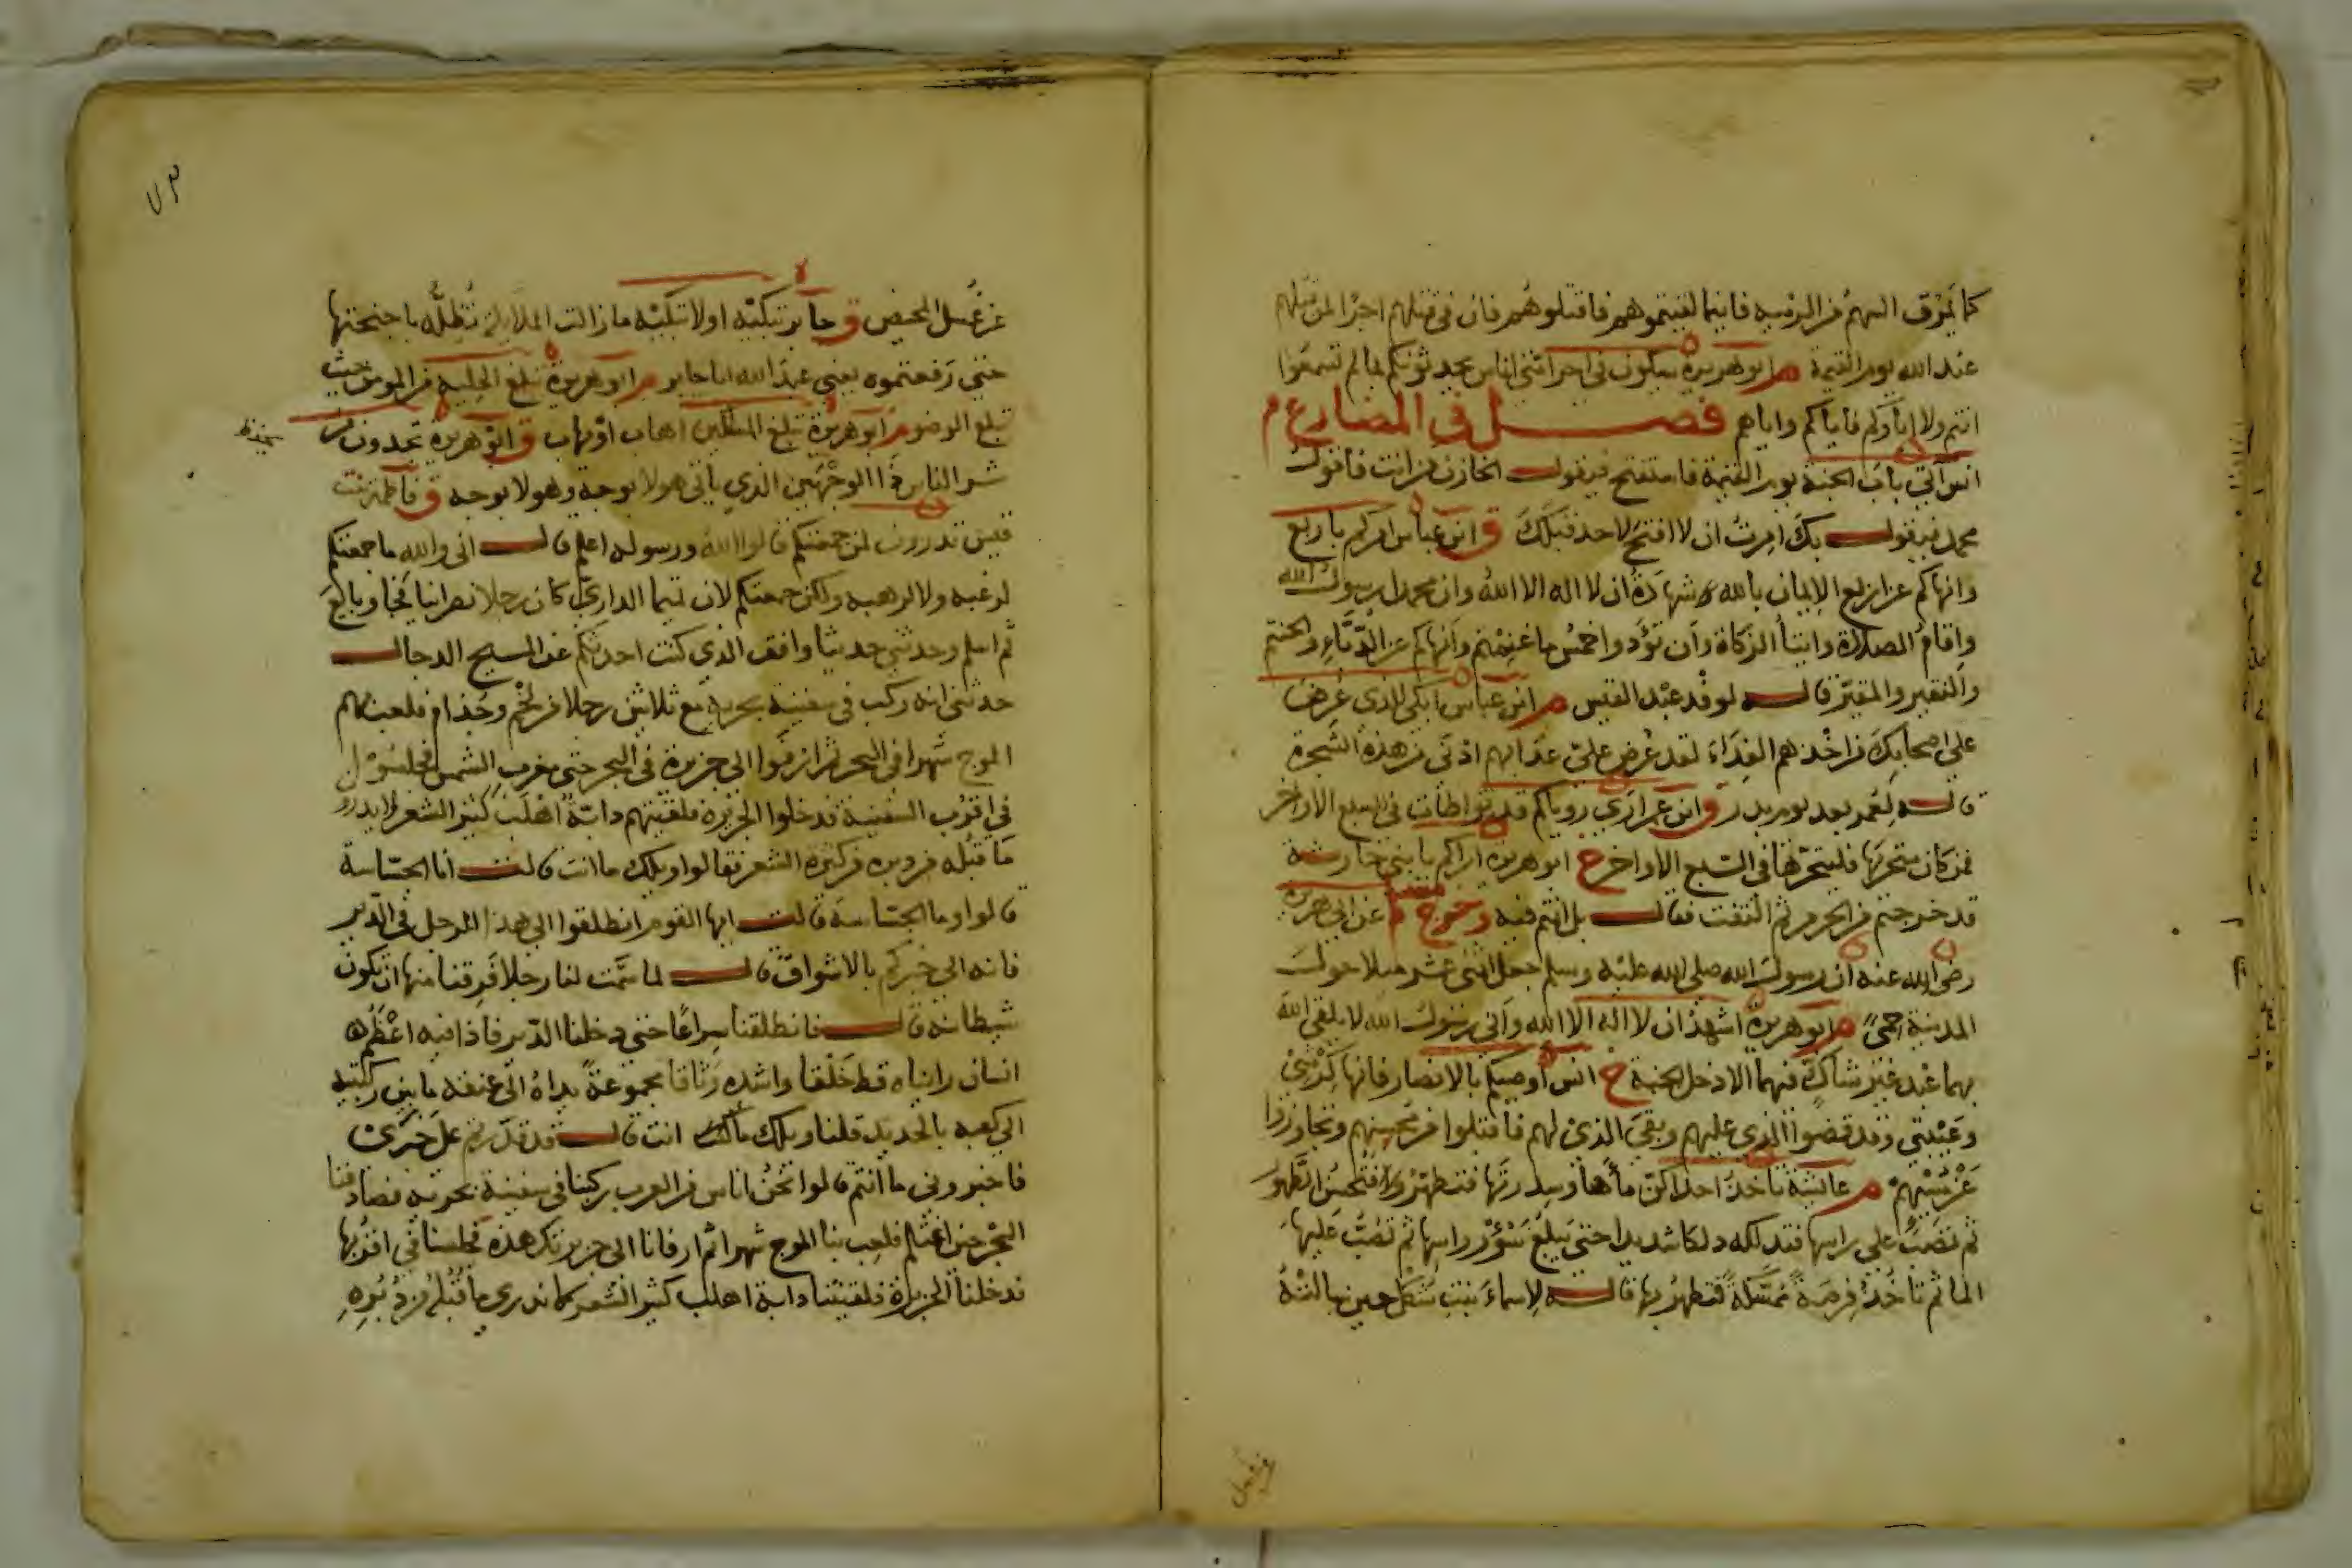 كما يمرق السهم من الرمية فاينما لقيتموهم فاقتلوهم فان في قتلهم اجرا لمن قتلهم
عند الله يوم القيمة م ابو هريرة سيكون في اخر امتي اناس يحدثونكم بما لم تسمعوا
انتم ولا اباؤكم فاياكم واياهم فصل في المضارع م
انس آتي باب الجنة يوم القيمة فاستفتح فيقول الخازن من انت فاقول
محمد فيقول بك امرت ان لا افتح لاحد قبلك ق ابن عباس امركم باربع
وانهاكم عن اربع الايمان بالله شهادة ان لا اله الا الله وان محمدا رسول الله
واقام الصلاة وايتا الزكاة وان تؤدوا خمس ما غنمتم وانهاكم عن الدباء والحنتم
والنقير والمقير قاله لوفد عبد القيس م ابن عباس ابكي للذي عرض
علي اصحابك من اخذهم الفداء لقد عرض علي عذابهم ادني من هذه الشجرة
قاله لعمر بعد يوم بدر ق ابن عمر اري رؤياكم قد تواطات في السبع الاواخر
فمن كان متحريها فليتحرها في السبع الاواخر خ ابو هريرة اراكم يا بني حارثة
قد خرجتم من الحرم ثم التفت فقال بل انتم فيه وخرج م عن ابي هريرة
رضي الله عنه ان رسول الله صلى الله عليه وسلم جعل اثني عشر ميلا حول
المدينة حمي م ابو هريرة اشهد ان لا اله الا الله واني رسول الله لا يلقى الله
بهما عبد غير شاك فيهما الا دخل الجنة خ انس اوصيكم بالانصار فانها كرشي
وعيبتي وقد قضوا الذي عليهم وبقي الذي لهم فاقبلوا من محسنهم وتجاوزوا
عن مسيئهم م عائشة تاخذ احداكن ماءها وسدرتها فتطهر فتحسن الطهور
ثم تصب علي راسها فتدلكه دلكا شديدا حتي يبلغ شؤن راسها ثم تصب عليها
الما ثم تاخذ فرصة ممسكة فتطهر بها قاله لاسماء بنت شكل حين سالته
عن غسل
عن غسل المحيض ق جابر تبكيه او لا تبكيه ما زالت الملائكة تظله باجنحتها
حتي رفعتموه يعني عبد الله ابا جابر م ابو هريرة تبلغ الحلية من المومن حيث
تبلغ الوضو م ابو هريرة تبلغ المساكن اهاب او يهاب ق ابو هريرة تجدون من
شر الناس ذا الوجهين الذي ياتي هولا بوجه وهولا بوجه ق فاطمة بنت
قيس تدرون لم جمعتكم قالوا الله ورسوله اعلم قال اني والله ما جمعتكم
لرغبة ولا لرهبة ولكن جمعتكم لان تميما الداري كان رجلا نصرانيا فجا وبايع
ثم اسلم وحدثني حديثا وافق الذي كنت احدثكم عن المسيح الدجال
حدثني انه ركب في سفينة بحرية مع ثلاثين رجلا من لخم وجذام فلعب بهم
الموج شهرا في البحر ثم ارفوا الي جزيرة في البحر حتي مغرب الشمس فجلسوا
في اقرب السفينة فدخلوا الجزيرة فلقيتهم دابة اهلب كثير الشعر لا يدرو
ما قبله من دبره من كثرة الشعر فقالوا ويلك ما انت قالت انا الجساسة
قالوا وما الجساسة قالت ايها القوم انطلقوا الي هذا الرجل في الدير
فانه الي خبركم بالاشواق قال لما سمت لنا رجلا فرقنا منها ان تكون
شيطانة قال فانطلقنا سراعا حتي دخلنا الدير فاذا فيه اعظم
انسان رايناه قط خلقا واشده وثاقا مجموعة يداه الي عنقه ما بين ركبتيه
الي كعبيه بالحديد قلنا ويلك ما انت قال قد قدرتم علي خبري
فاخبروني ما انتم قالوا نحن اناس من العرب ركبنا في سفينة بحرية فصادفنا
البحر حين اغتلم فلعب بنا الموج شهرا ثم ارفانا الي جزيرتك هذه فجلسنا في اقربها
فدخلنا الجزيرة فلقيتنا دابة اهلب كثير الشعر لا ندري ما قبله من دبره
٧٣